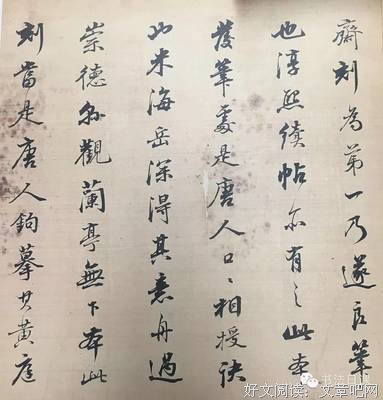 齋刻為第一乃遂良筆
也淳熙續帖亦有之此本
發筆處是唐人口〻相授訣
也米海岳深得其意舟過
崇德縣觀蘭亭無下本此
刻當是唐人鉤摹黃庭
书法日
好文阅读:文章吧网